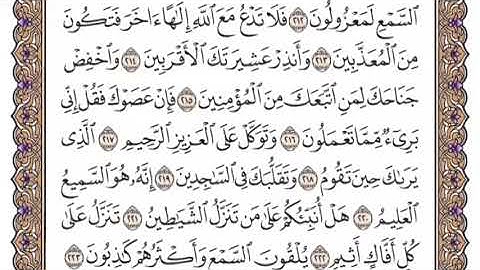 ٱلسَّمۡعِ لَمَعۡزُولُونَ ٢١٢ فَلَا تَدۡعُ مَعَ ٱللَّهِ إِلَٰهًا ءَاخَرَ فَتَكُونَ
مِنَ ٱلۡمُعَذَّبِينَ ٢١٣ وَأَنذِرۡ عَشِيرَتَكَ ٱلۡأَقۡرَبِينَ ٢١٤ وَٱخۡفِضۡ
جَنَاحَكَ لِمَنِ ٱتَّبَعَكَ مِنَ ٱلۡمُؤۡمِنِينَ ٢١٥ فَإِنۡ عَصَوۡكَ فَقُلۡ إِنِّي
بَرِيٓءٞ مِّمَّا تَعۡمَلُونَ ٢١٦ وَتَوَكَّلۡ عَلَى ٱلۡعَزِيزِ ٱلرَّحِيمِ ٢١٧ ٱلَّذِي
يَرَىٰكَ حِينَ تَقُومُ ٢١٨ وَتَقَلُّبَكَ فِي ٱلسَّٰجِدِينَ ٢١٩ إِنَّهُۥ هُوَ ٱلسَّمِيعُ
ٱلۡعَلِيمُ ٢٢٠ هَلۡ أُنَبِّئُكُمۡ عَلَىٰ مَن تَنَزَّلُ ٱلشَّيَٰطِينُ ٢٢١ تَنَزَّلُ عَلَىٰ
كُلِّ أَفَّاكٍ أَثِيمٖ ٢٢٢ يُلۡقُونَ ٱلسَّمۡعَ وَأَكۡثَرُهُمۡ كَٰذِبُونَ ٢٢٣